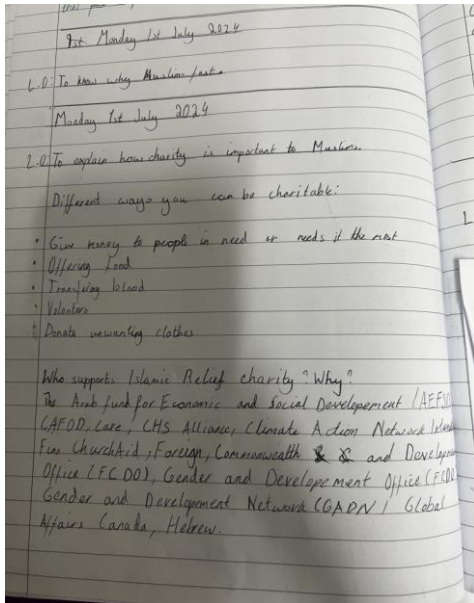 1st Monday 1st July 2024
L.O: To know why Muslims fast.
Monday 1st July 2024
L.O To explain how charity is important to Muslims.
Different ways you can be charitable:
• Give money to people in need or needs it the most
• Offering food
• Transfering blood
• Volontere
• Donate unwanting clothes
Who supports Islamic Relief charity? Why?
The Arab fund for Economic and Social Developement (AEFSD
CAFOD, Care, CHS Alliance, Climate Action Network
Finn ChurchAid, Foreign, Commonwealth and Developm
Office (FCDO), Gender and Developement Office (FCDO
Gender and Developement Network (GADN) Global
Affairs Canada, Hebrew.